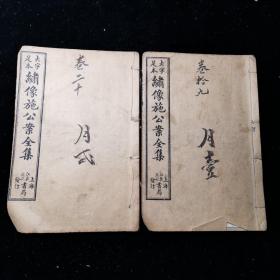 大字
足本
繡像施公案全集
上海
書局
發行
卷二十
月弍
大字
足本
繡像施公案全集
上海
書局
發行
卷拾九
月壹